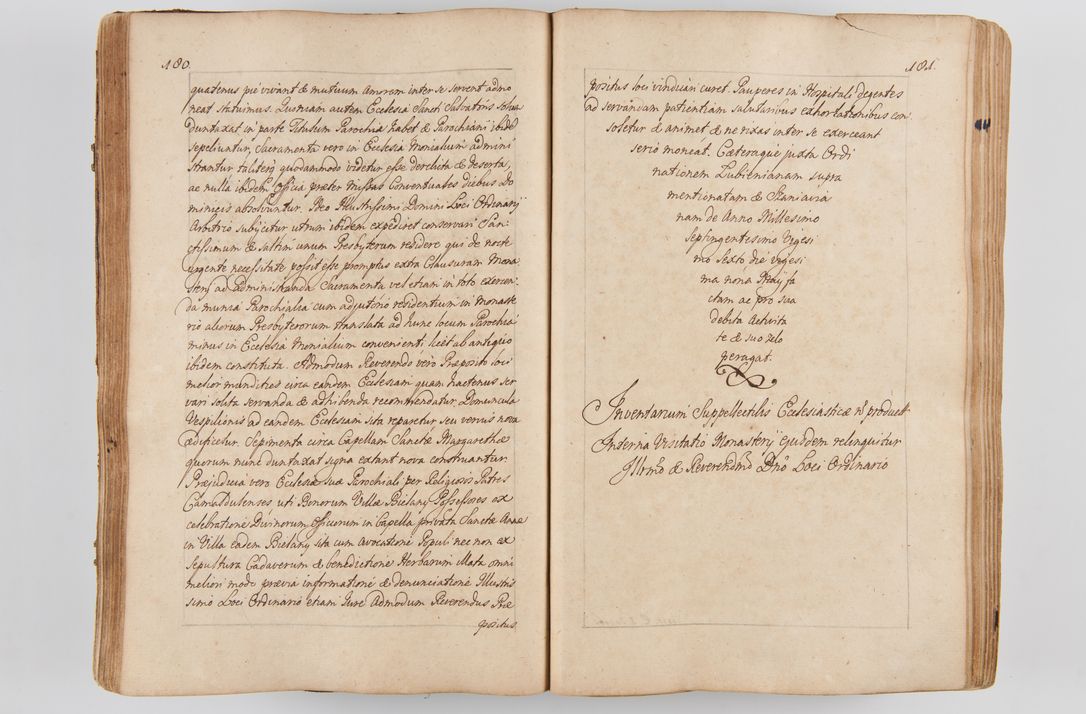 180.
quatenus pie vivant & mutuum Amorem inter se servent admo
neat statuimus. Quoniam autem Ecclesia Sancti Salvatoris solum
duntaxat in parte Titulum Parochiæ habet & Parochiani ibidem
sepeliuntur, Sacramenta vero in Ecclesia Monialium admini
strantur taliterq quodammodo videtur esse derelicta & deserta,
ac nulla ibidem Officia præter Missas Conventuales diebus Do
minicis absolvuntur. Ideo Illustrissimi Domini Loci Ordinarij
Arbitrio subijcitur utrum ibidem expediret conservari San:
ctissimum & saltim unum Presbyterum residere qui de nocte
urgente necessitate possit esse promptus extra Clausuram Mona
sterij ad Administranda Sacramenta vel etiam in toto exercen:
da munia Parochialia cum adjutorio residentium in Monaste
rio aliorum Presbyterorum translata ad hunc locum Parochia
minus in Ecclesia Monialium convenienti, licet ab antiquo
ibidem constituta. Admodum Reverendo vero Præposito loci
melior mundities circa eandem Ecclesiam quam hactenus ser
vari solita servanda & adhibenda recommendatur. Domuncula
Vespilionis ad eandem Ecclesiam sita reparetur seu verius nova
ædificetur. Sepimenta circa Capellam Sanctæ Margarethæ
quorum nunc duntaxat signa extant nova construantur.
Præjudicia vero Ecclesiæ suæ Parochiali per Religiosos Patres
Camaldulenses uti Bonorum Villæ Bielany Possessores ex
celebratione Divinorum Officiorum in Capella privata Sanctæ Annæ
in Villa eadem Bielany sita cum avocatione Populi nec non ex
Sepultura Cadaverum & benedictione Herbarum illata omni
meliori modo prævia informatione & denunciatione Illustris
simo Loci Ordinario etiam Jure Admodum Reverendus Præ
positus.
181.
positus loci vindicari curet. Pauperes in Hospitali degentes
ad servandam patientiam salutaribus exhortationibus con
soletur & animet & ne rixas inter se exerceant
serio moneat. Cæteraque juxta Ordi
nationem Lubienianam supra
mentionatam & Szaniavia
nam de Anno Millesimo
Septingentesimo Vigesi
mo Sexto die vigesi
ma nona Maij fa
ctam ac pro sua
debita Activita
te & suo zelo
peragat.
Inventarium Suppellectilis Ecclesiasticæ product
Interna Visitatio Monasterij ejusdem relinquitur
Illrmo & Reverendmo Dno Loci Ordinario